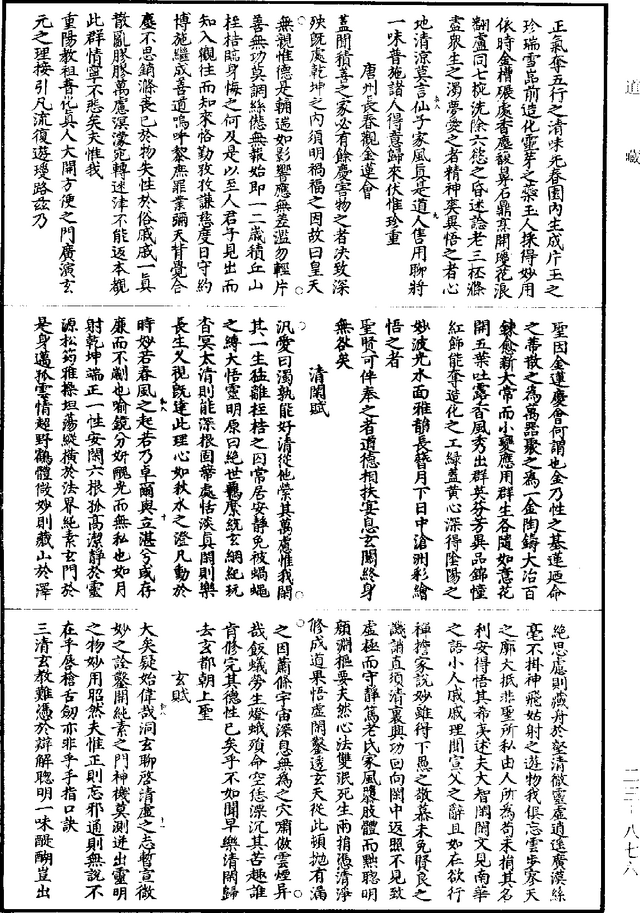 道藏
正氣奪五行之清味死春園內生成片玉之
珍瑞雪嵓前造化靈芽之蘂玉人採得妙用
依時金槽碾處香塵馥鼻石鼎烹開瓊花浪
翻盧同七椀洗除六慾之昏迷諗老三柸滌
盡衆生之濁夢愛之者精神爽異悟之者心
地清涼莫言仙子家風真是道人售用聊將
一味普施諸人得意歸來伏惟珍重
唐州長春觀金蓮會
蓋聞積善之家必有餘慶害物之者決致深
殃旣處乾坤之內須明禍福之因故曰皇天
無親惟德是輔遄如影響應無差濫勿輕片
善無功莫調絲𠎝無報始即一二歲積丘山
桎梏臨身悔之何及是以至人君子見出而
知入觀往而知來恪勤孜孜謙慈度日守約
博施繼成善道嗚呼黎庶罪業彌天背覺合
塵不思銷滌喪已於物失性於俗戚戚一真
散亂膠膠萬慮溟濛宛轉迷津不能返本覩
此群情寧不悲矣夫惟我
重陽教祖普化真人大開方便之門廣演玄
元之理接引凡流復遊璎路茲乃
聖因金蓮慶會何謂也金乃性之基蓮廼命
之蒂散之為萬器聚之為一金陶鑄大冶百
鍊愈新大常而小變應用群生各隨如意花
開五葉吐露香風秀出群英芬芳異品錦幢
紅飾能奪造化之工綠蓋黄心深得陰陽之
妙波光水面雅韻長簪月下日中滄洲彩繪
悟之者
聖賢可伴奉之者道德相扶宴息玄關終身
無欲矣
清閑賦
汎愛曰濁孰能好清從他縈其萬慮惟我閑
其一生猛離桎梏之囚常居安静免被蝸蠅
之縛大悟靈明原曰絕世羈縻統玄綱紀玩
杳冥太清則能深根固蒂處恬淡真閑則樂
長生久視旣達此理心如秋水之澄凡動於
時妙若春風之起若乃卓爾與立湛兮或存
廉而不劌也喻鏡分妍醜光而無私也如月
射乾坤端正一性安閑六根孤高潔静於靈
源松筠雅操坦蕩縱橫於法界純素玄門於
是身邁孤雲情超野鶴體微妙則藏山於澤
絕思慮則藏舟於壑清徹靈虛逍遥廣漠絲
毫不掛神飛姑射之遊物我俱忘雲步家天
之廓大抵非聖所私由人所為苟未捐其名
利安得悟其希夷迷夫大智閑閑文見南華
之語小人戚戚理聞宣父之辭且如在欲行
禪擔家說妙雖得下愚之敬慕未免賢良之
譏誚直須清裏興功回向閑中返照不見致
虛極而守靜篤老氏家風隳肢體而黜聰明
顔淵樞要夫然心法雙泯死生兩捐憑清淨
修成道果悟虛閑鑿透玄天從此頓抛有漏
之因蕭條宇宙深息無為之穴瀟傲雲煙异
哉飯蟻勞生燈蛾殞命空恁漂沉其苦趣誰
肯修完其德性已矣乎不如聞早樂清閑歸
去玄都朝上聖
玄賦
大矣疑始偉哉洞玄聊啓清虛之志暫宣微
妙之詮鑿開純素之門神機莫測迸出靈明
之物妙用昭然夫惟正則忘邪通則無說不
在乎唇槍舌劒亦非乎手指口訣
三清玄教難憑於辯解聰明一味醍醐豈出
二三-八七八